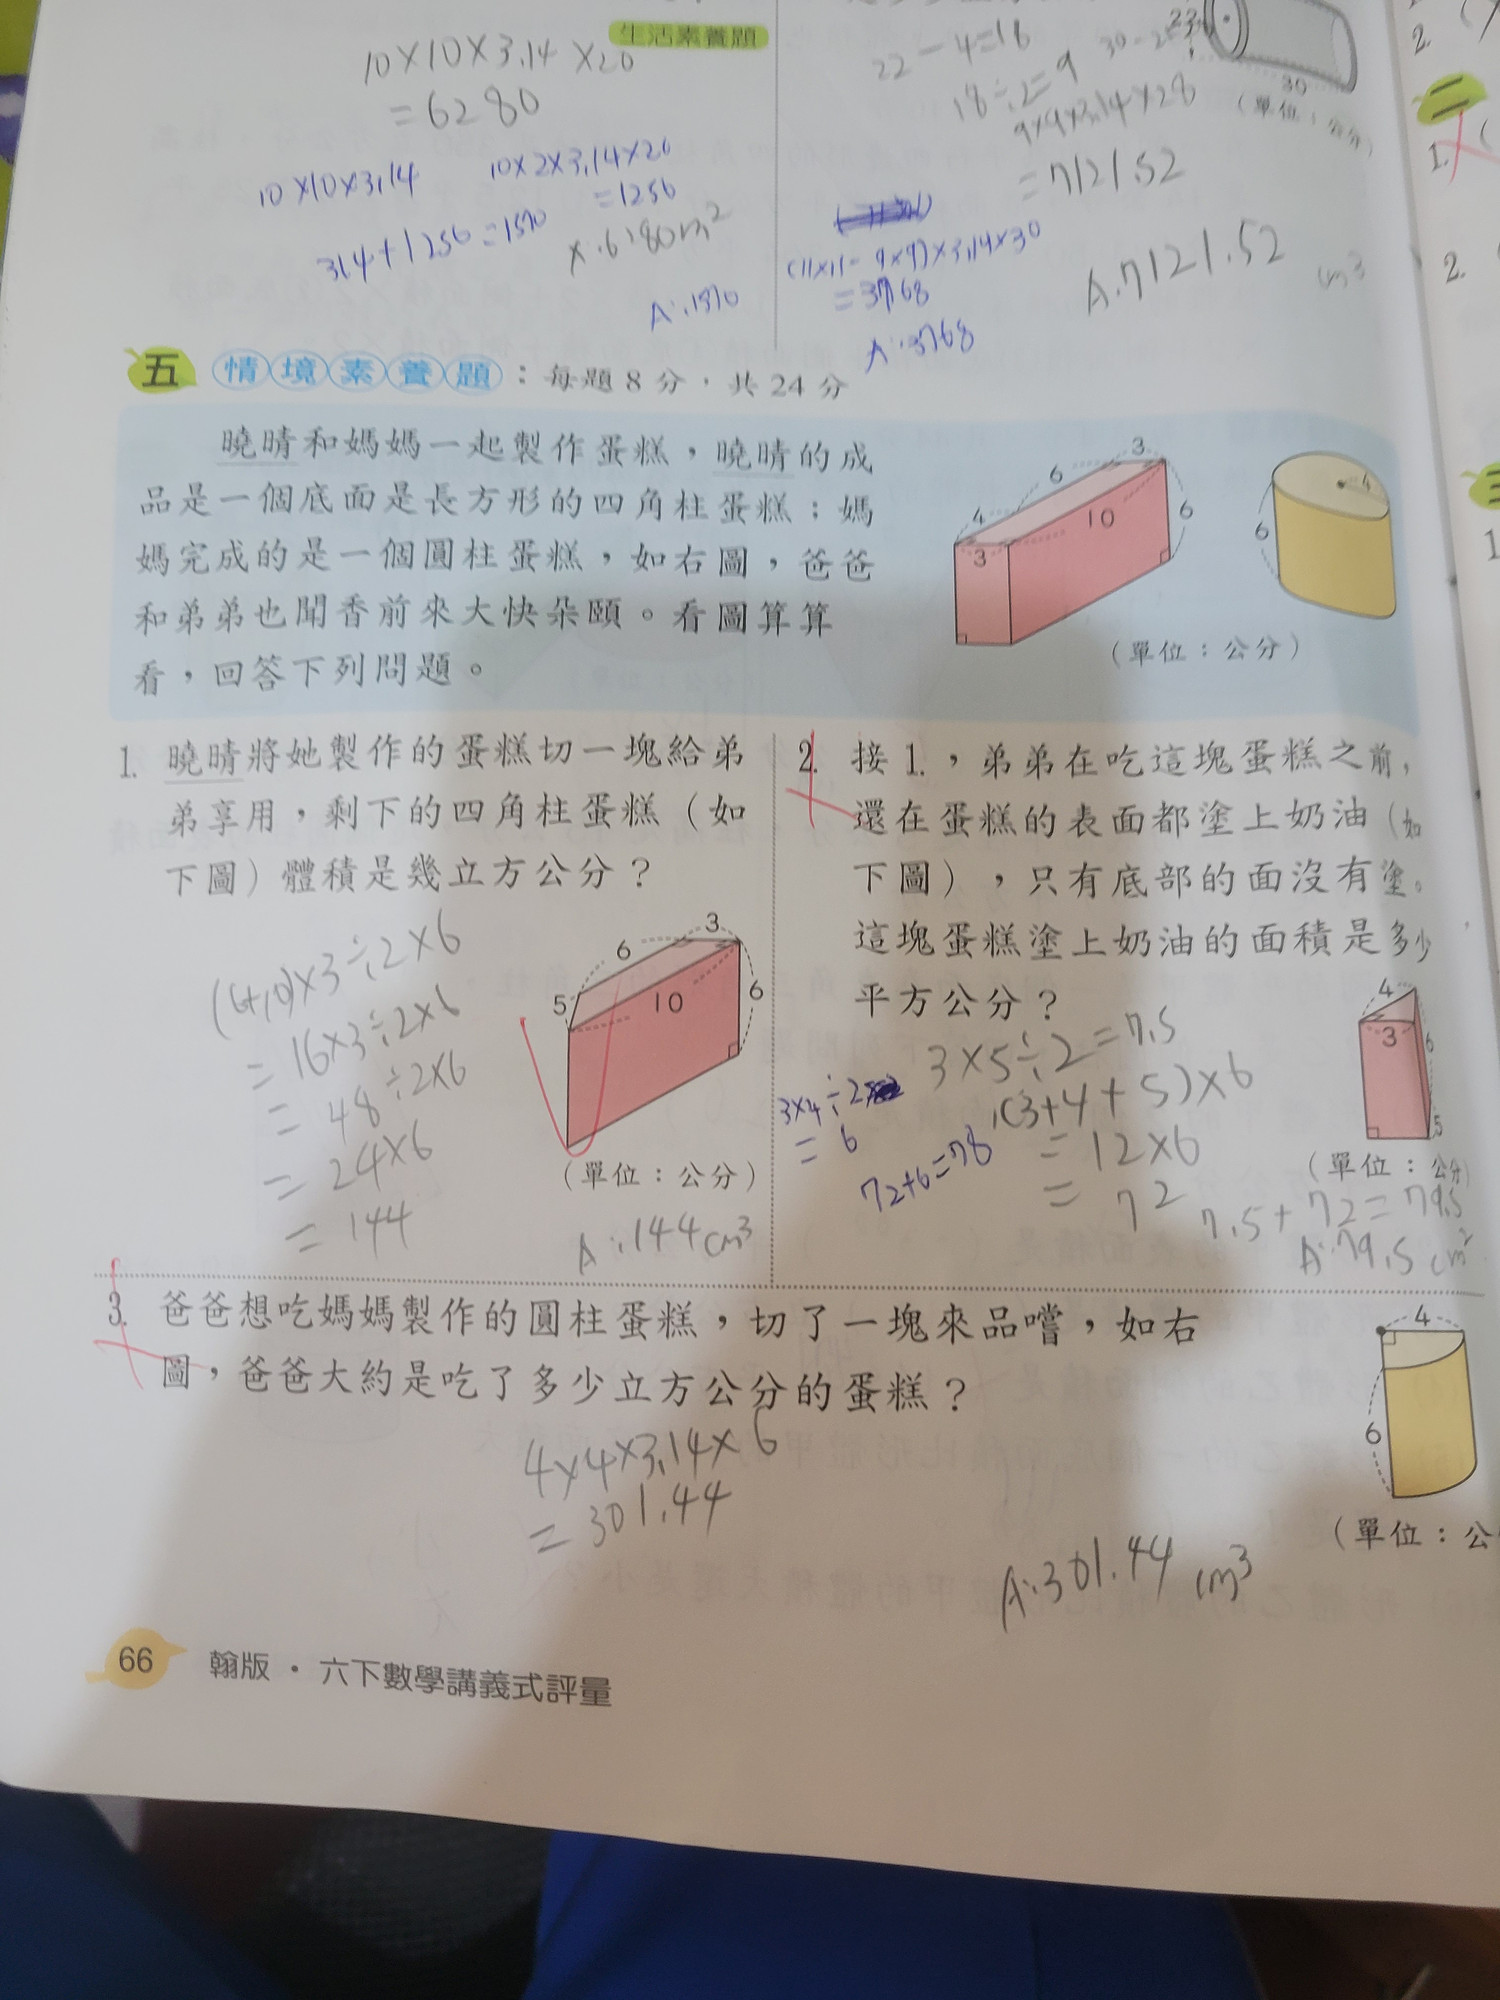 生活素養題
10×10×3.14×20
=6280
10×10×3.14
10×2×3.14×20
=1256
314+1256=1570
A:1570
22-4=18
18÷2=9
9×9×3.14×28
=7121.52
(11×11-9×9)×3.14×30
=3768
A:3768
A.7121.52 cm³
22
30
(單位:公分)
2.
二
1.
2.
1
五 情境素養題:每題8分,共24分
曉晴和媽媽一起製作蛋糕,曉晴的成
品是一個底面是長方形的四角柱蛋糕;媽
媽完成的是一個圓柱蛋糕,如右圖,爸爸
和弟弟也聞香前來大快朵頤。看圖算算
看,回答下列問題。
3
6
4
10
6
3
4
6
(單位:公分)
1. 曉晴將她製作的蛋糕切一塊給弟
弟享用,剩下的四角柱蛋糕(如
下圖)體積是幾立方公分?
3
6
5
10
6
(單位:公分)
(6+10)×3÷2×6
=16×3÷2×6
=48÷2×6
=24×6
=144
A:144cm³
2. 接1.,弟弟在吃這塊蛋糕之前,
還在蛋糕的表面都塗上奶油(如
下圖),只有底部的面沒有塗。
這塊蛋糕塗上奶油的面積是多少
平方公分?
4
3
6
5
(單位:公分)
3×5÷2=7.5
(3+4+5)×6
=12×6
=72
7.5+72=79.5
A:79.5cm²
3×4÷2
=6
72+6=78
3. 爸爸想吃媽媽製作的圓柱蛋糕,切了一塊來品嚐,如右
圖,爸爸大約是吃了多少立方公分的蛋糕?
4
6
(單位:公
4×4×3.14×6
=301.44
A:301.44 cm³
66 翰版・六下數學講義式評量